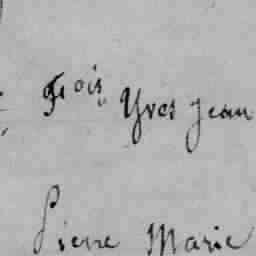 Fçois Yves Jean
Pierre Marie